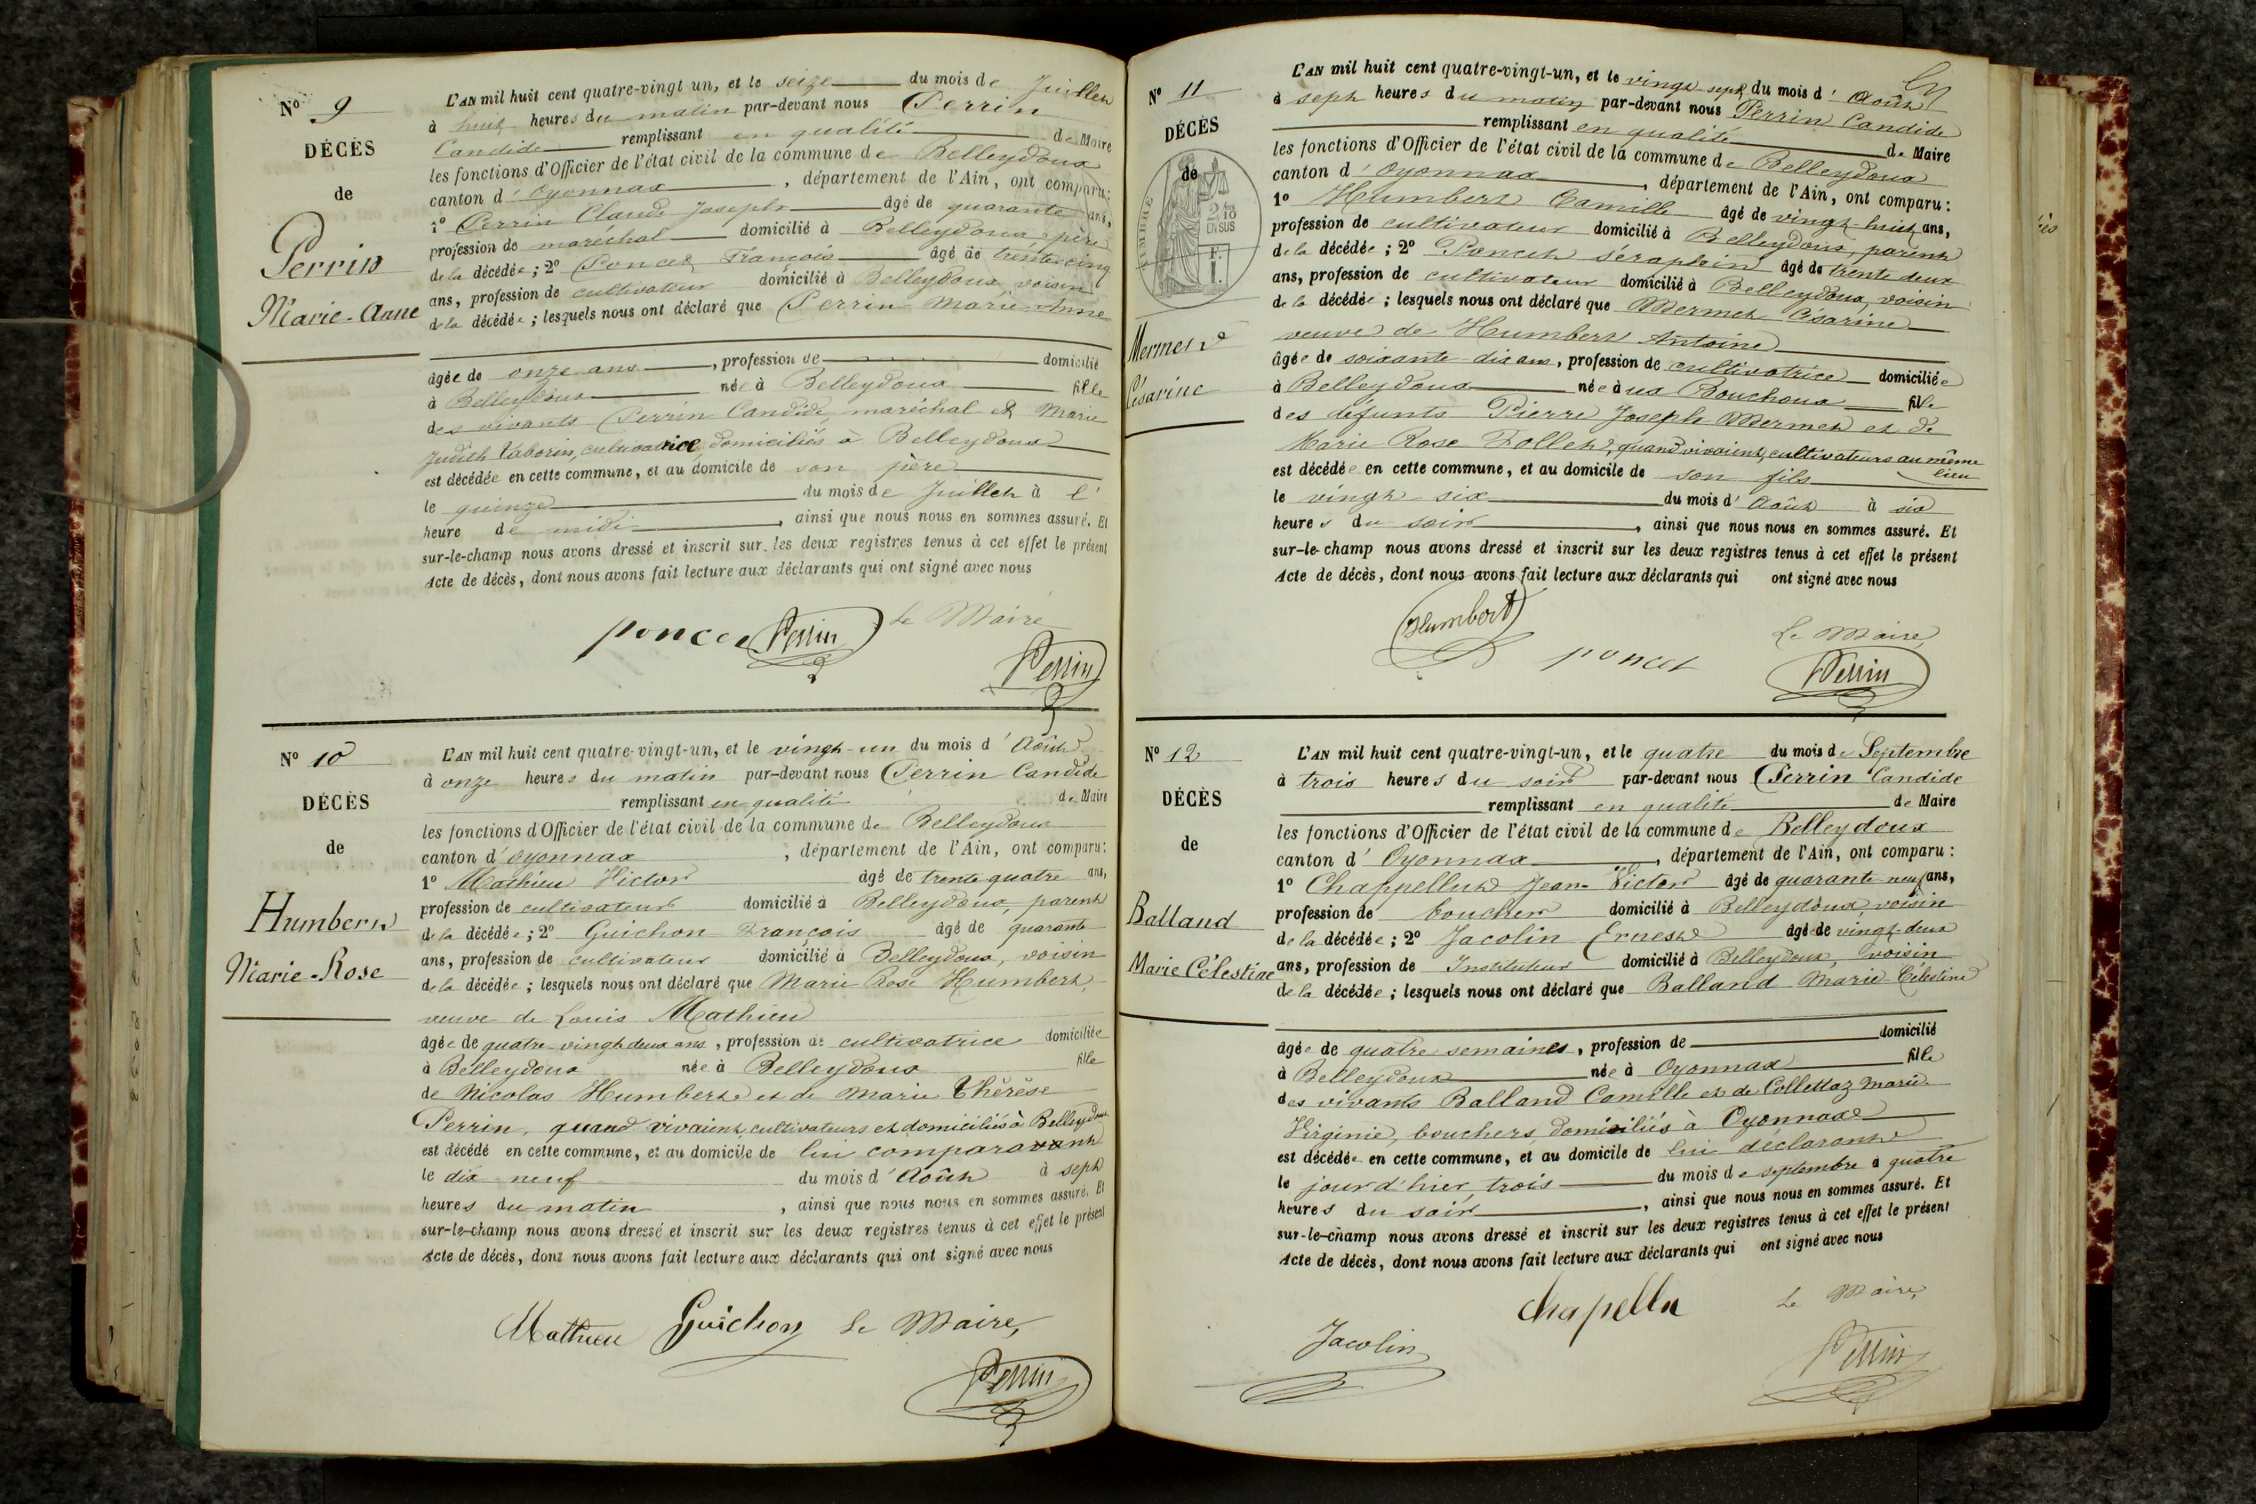 Nº 9
DÉCÈS
de
Perrin
Marie-Anne
L'AN mil huit cent quatre-vingt un, et le seize du mois de Juillet
à huit heures du matin par-devant nous Perrin
Candide remplissant en qualité de Maire
les fonctions d'Officier de l'état civil de la commune de Belleydoux
canton d'Oyonnax, département de l'Ain, ont comparu:
1º Perrin Claude Joseph âgé de quarante ans,
profession de maréchal domicilié à Belleydoux père
de la décédée; 2º Poncet François âgé de trente cinq
ans, profession de cultivateur domicilié à Belleydoux, voisin
de la décédée; lesquels nous ont déclaré que Perrin Marie Anne
âgée de onze ans, profession de domicilié
à Belleydoux née à Belleydoux fille
des vivants Perrin Candide, maréchal et Marie
Judith Taborin, cultivatrice domiciliés à Belleydoux
est décédée en cette commune, et au domicile de son père
le quinze du mois de Juillet à l'
heure de midi, ainsi que nous nous en sommes assuré. Et
sur-le-champ nous avons dressé et inscrit sur les deux registres tenus à cet effet le présent
Acte de décès, dont nous avons fait lecture aux déclarants qui ont signé avec nous
poncet Perrin Le Maire
Perrin
Nº 10
DÉCÈS
de
Humbert
Marie-Rose
L'AN mil huit cent quatre-vingt-un, et le vingt-un du mois d'Août
à onze heures du matin par-devant nous Perrin Candide
remplissant en qualité de Maire
les fonctions d'Officier de l'état civil de la commune de Belleydoux
canton d'Oyonnax, département de l'Ain, ont comparu:
1º Mathieu Victor âgé de trente quatre ans,
profession de cultivateur domicilié à Belleydoux, parent
de la décédée; 2º Guichon François âgé de quarante
ans, profession de cultivateur domicilié à Belleydoux, voisin
de la décédée; lesquels nous ont déclaré que Marie Rose Humbert,
veuve de Louis Mathieu
âgée de quatre-vingt deux ans, profession de cultivatrice domiciliée
à Belleydoux née à Belleydoux fille
de Nicolas Humbert et de Marie Thérèse
Perrin, quand vivaient, cultivateurs et domiciliés à Belleydoux
est décédé en cette commune, et au domicile de lui comparavant
le dix neuf du mois d'Août à sept
heures du matin, ainsi que nous nous en sommes assuré. Et
sur-le-champ nous avons dressé et inscrit sur les deux registres tenus à cet effet le présent
Acte de décès, dont nous avons fait lecture aux déclarants qui ont signé avec nous
Mathieu Guichon Le Maire,
Perrin
Nº 11
DÉCÈS
de
TIMBRE
2/10
EN SUS
F.
1.
Mermet
Césarine
L'AN mil huit cent quatre-vingt-un, et le vingt-sept du mois d'Août
à sept heures du matin par-devant nous Perrin Candide
remplissant en qualité de Maire
les fonctions d'Officier de l'état civil de la commune de Belleydoux
canton d'Oyonnax, département de l'Ain, ont comparu:
1º Humbert Camille âgé de vingt-huit ans,
profession de cultivateur domicilié à Belleydoux, parent
de la décédée; 2º Poncet séraphin âgé de trente deux
ans, profession de cultivateur domicilié à Belleydoux, voisin
de la décédée; lesquels nous ont déclaré que Mermet Césarine
veuve de Humbert Antoine
âgée de soixante dix ans, profession de cultivatrice domiciliée
à Belleydoux née aux Bouchoux fille
des défunts Pierre Joseph Mermet et de
Marie Rose Follet, quand vivaient, cultivateurs au même
lieu
est décédée en cette commune, et au domicile de son fils
le vingt six du mois d'Août à six
heures du soir, ainsi que nous nous en sommes assuré. Et
sur-le-champ nous avons dressé et inscrit sur les deux registres tenus à cet effet le présent
Acte de décès, dont nous avons fait lecture aux déclarants qui ont signé avec nous
Humbert
poncet Le Maire,
Perrin
Nº 12
DÉCÈS
de
Balland
Marie Célestine
L'AN mil huit cent quatre-vingt-un, et le quatre du mois de Septembre
à trois heures du soir par-devant nous Perrin Candide
remplissant en qualité de Maire
les fonctions d'Officier de l'état civil de la commune de Belleydoux
canton d'Oyonnax, département de l'Ain, ont comparu:
1º Chappelluz Jean-Victor âgé de quarante neuf ans,
profession de boucher domicilié à Belleydoux, voisin
de la décédée; 2º Jacolin Ernest âgé de vingt-deux
ans, profession de Instituteur domicilié à Belleydoux, voisin
de la décédée; lesquels nous ont déclaré que Balland Marie-Célestine
âgée de quatre semaines, profession de domicilié
à Belleydoux née à Oyonnax fille
des vivants Balland Camille et de Collettaz Marie
Virginie, bouchers, domiciliés à Oyonnax
est décédée en cette commune, et au domicile de lui déclarant
le jour d'hier, trois du mois de septembre à quatre
heures du soir, ainsi que nous nous en sommes assuré. Et
sur-le-champ nous avons dressé et inscrit sur les deux registres tenus à cet effet le présent
Acte de décès, dont nous avons fait lecture aux déclarants qui ont signé avec nous
Chapellu Le Maire,
Jacolin
Perrin